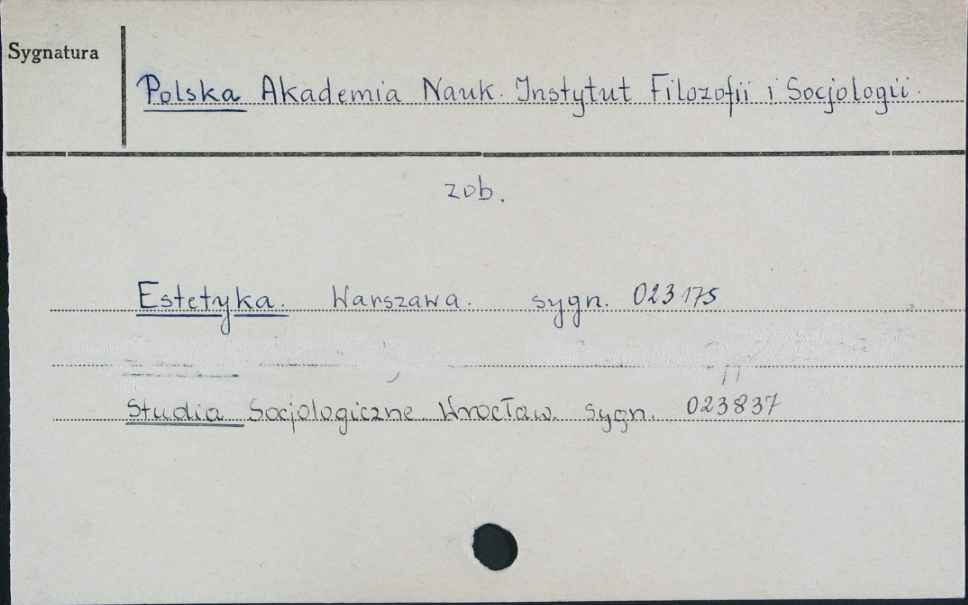 Sygnatura
Polska Akademia Nauk. Instytut Filozofii i Socjologii.
zob.
Estetyka. Warszawa. sygn. 023175
Studia Socjologiczne. Wrocław. sygn. 023837